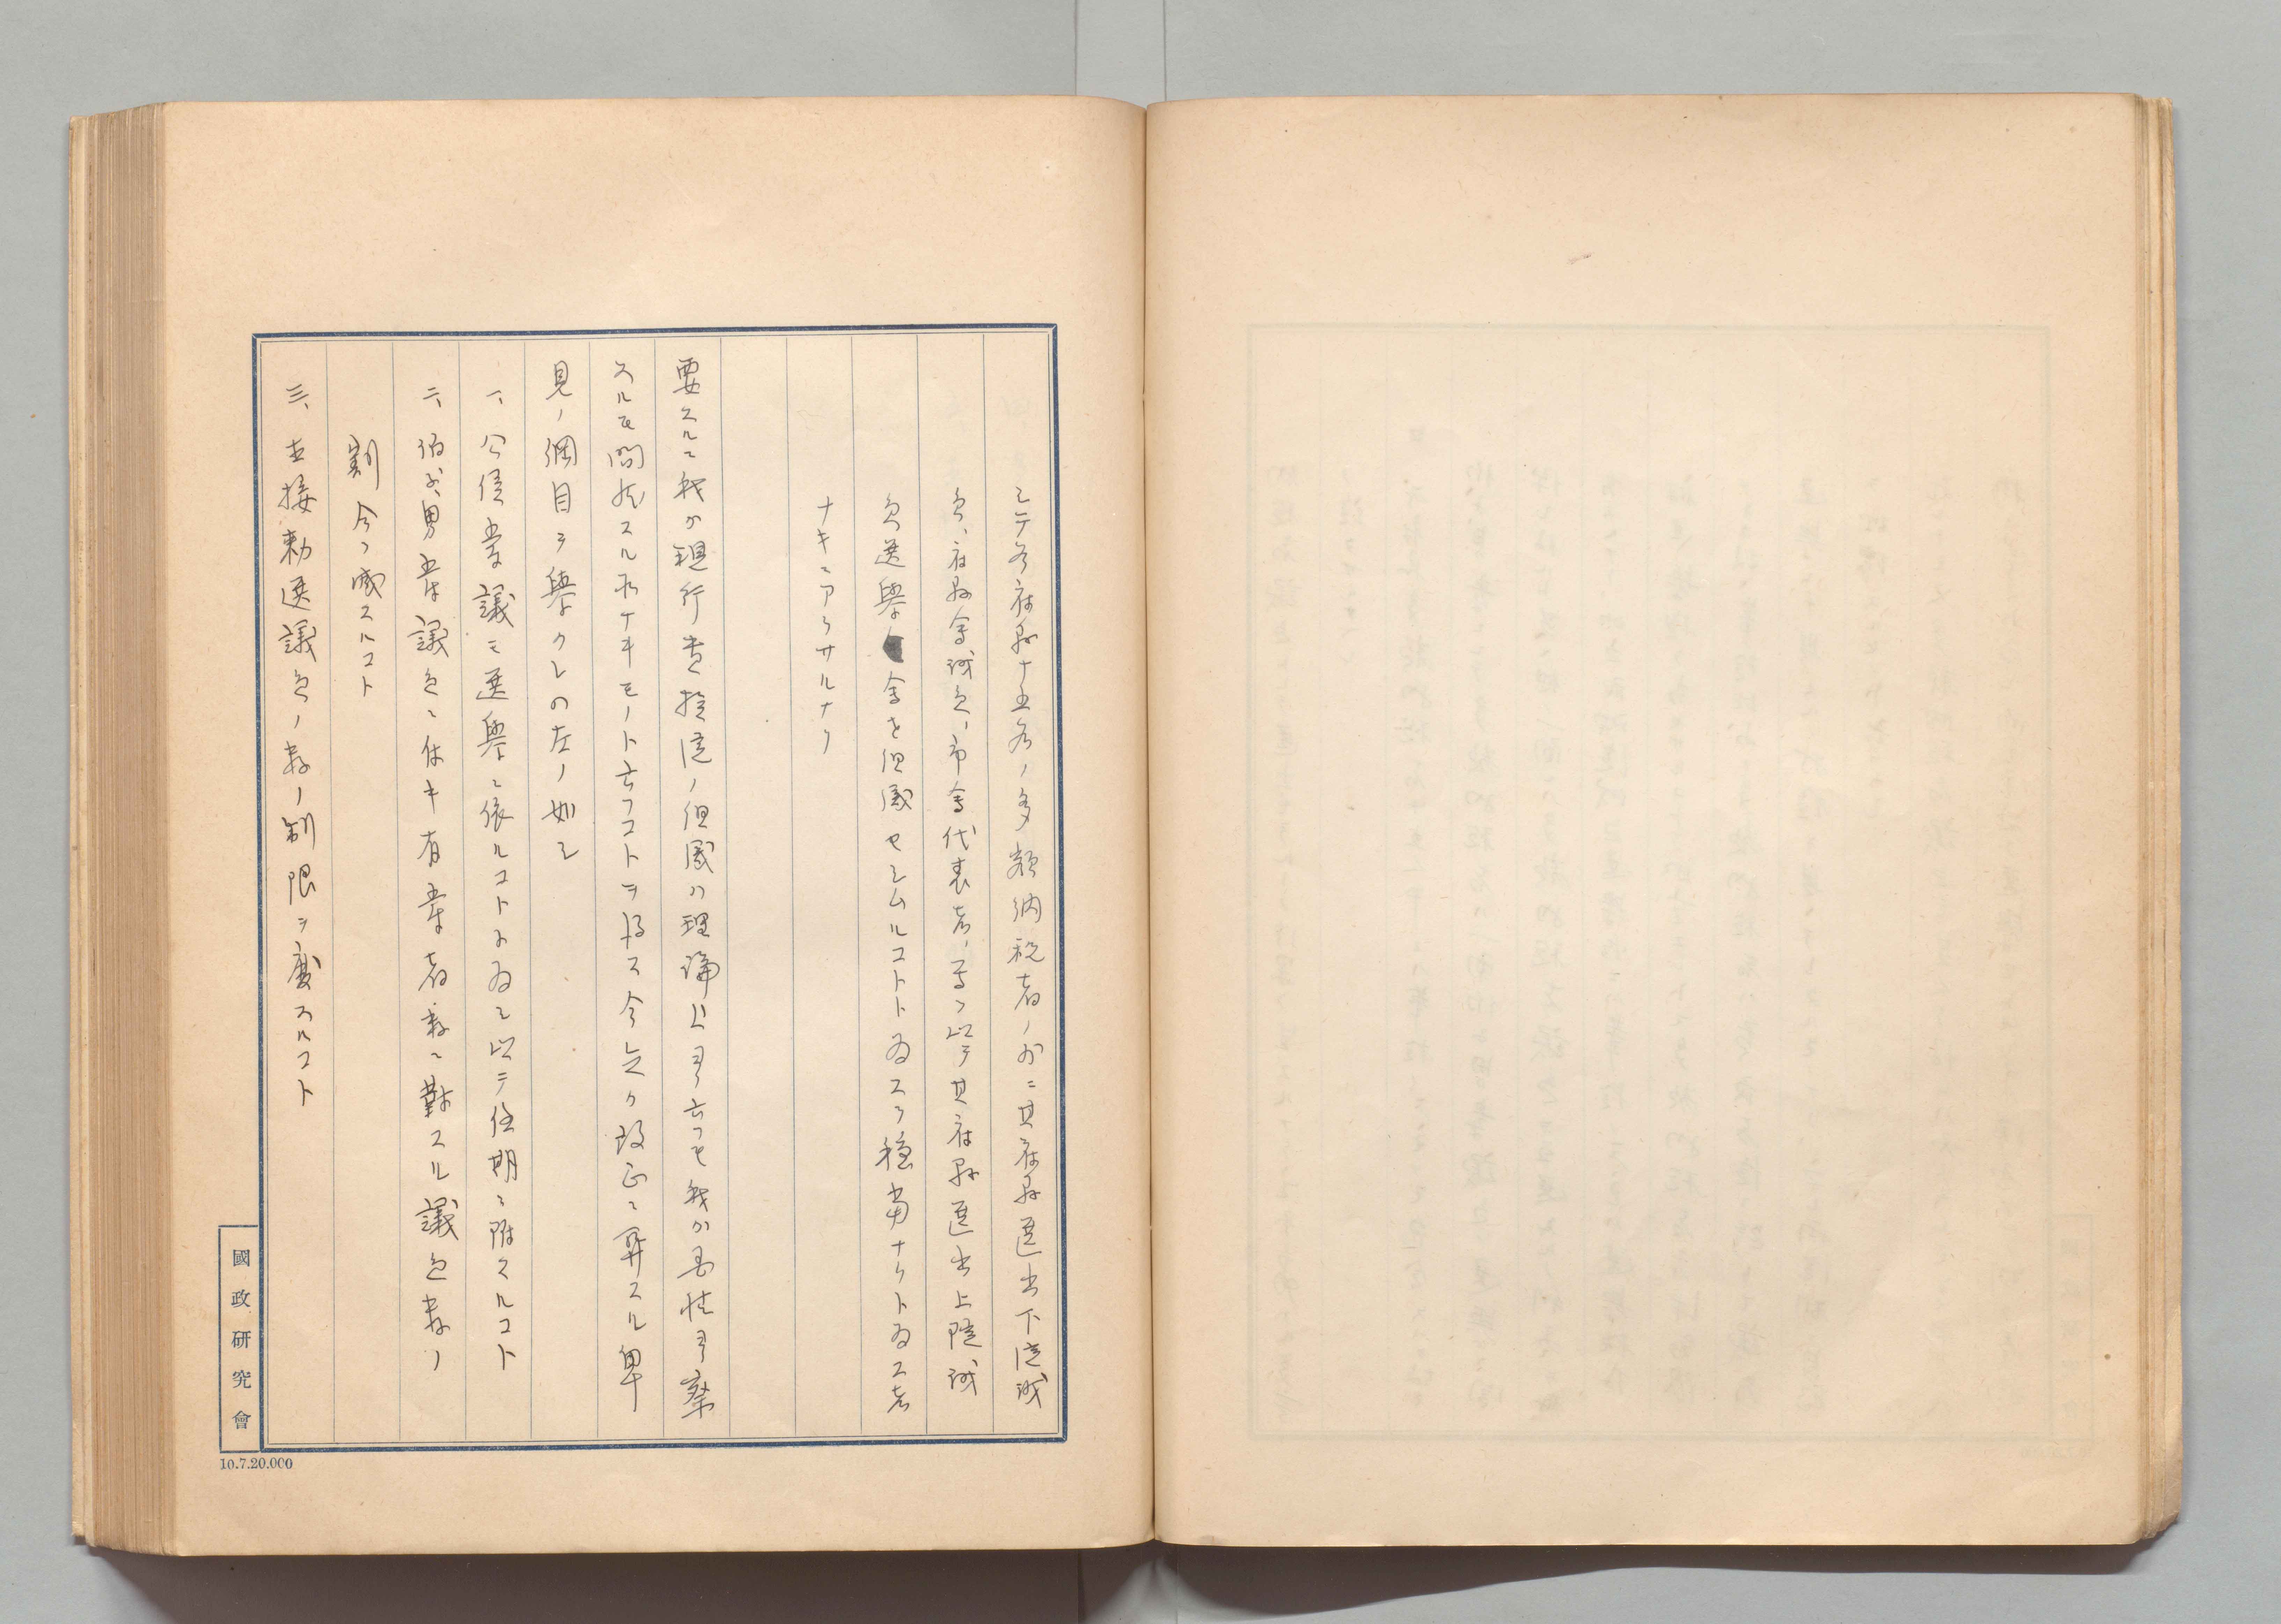 シテ各府縣十五名ノ多額納税者ノ外ニ其府縣選出下院議
員、府縣會議員、市會代表者、等ヲ以テ其府縣選出上院議
員選擧會ヲ組織セシムルコトト為スヲ穏當ナリト為ス者
ナキニアラサルナリ
要スルニ我カ現行貴族院ノ組織ハ理論上ヨリ云フモ我カ國情ヨリ察
スルモ間然スル所ナキモノト云フコトヲ得ス今之カ改正ニ関スル卑
見ノ綱目ヲ擧クレハ左ノ如シ
一、公侯爵議モ選擧ニ依ルコトト為シ以テ任期ニ附スルコト
二、伯子男爵議員ニ付キ有爵者数ニ對スル議員数ノ
割合ヲ減スルコト
三、直接勅選議員ノ数ノ制限ヲ廢スルコト
國政研究會
10.7.20.000